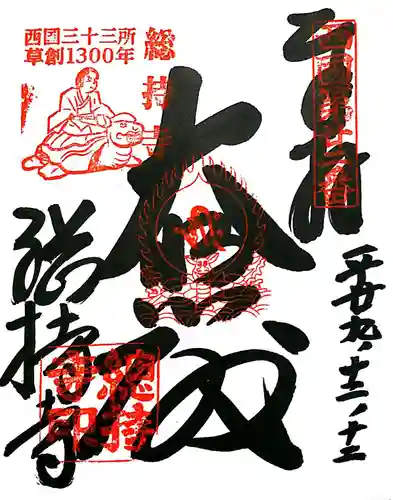 奉拝
西國第廿二番
平廿九、十二、十二
大悲殿
西国三十三所
草創1300年
総持寺
総持寺
総持寺印